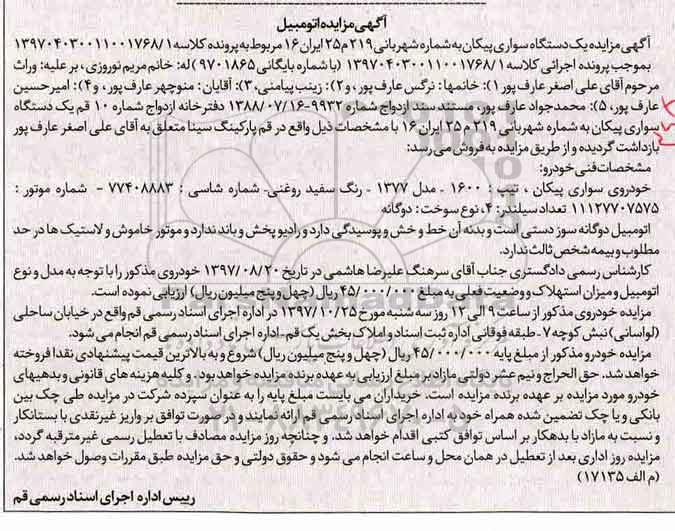 آگهی مزایده اتومبیل
آگهی مزایده یک دستگاه سواری پیکان به شماره شهربانی ۲۱۹م۲۵ ایران ۱۶ مربوط به پرونده کلاسه ۱۳۹۷۰۴۰۳۰۰۱۱۰۰۱۷۶۸/۱
بموجب پرونده اجرائی کلاسه ۱۳۹۷۰۴۰۳۰۰۱۱۰۰۱۷۶۸/۱ (با شماره بایگانی ۹۷۰۱۸۶۵) له: خانم مریم نوروزی، بر علیه: وراث
مرحوم آقای علی اصغر عارف پور ۱): خانمها: نرگس عارف پور، و۲): زینب پیامنی، ۳): آقایان: منوچهر عارف پور، و ۴): امیرحسین
عارف پور، ۵): محمدجواد عارف پور، مستند سند ازدواج شماره ۹۹۳۲-۱۳۸۸/۰۷/۱۶ دفترخانه ازدواج شماره ۱۰ قم یک دستگاه
سواری پیکان به شماره شهربانی ۲۱۹م۲۵ ایران ۱۶ با مشخصات ذیل واقع در قم پارکینگ سینا متعلق به آقای علی اصغر عارف پور
بازداشت گردیده و از طریق مزایده به فروش می رسد:
مشخصات فنی خودرو:
خودروی سواری پیکان ، تیپ : ۱۶۰۰ - مدل ۱۳۷۷ - رنگ سفید روغنی- شماره شاسی : ۷۷۴۰۸۸۸۳ - شماره موتور :
۱۱۱۲۷۷۰۷۵۷۵ تعداد سیلندر: ۴، نوع سوخت: دوگانه
اتومبیل دوگانه سوز دستی است و بدنه آن خط و خش و پوسیدگی دارد و رادیو پخش و باند ندارد و موتور خاموش و لاستیک ها در حد
مطلوب و بیمه شخص ثالث ندارد.
کارشناس رسمی دادگستری جناب آقای سرهنگ علیرضا هاشمی در تاریخ ۱۳۹۷/۰۸/۲۰ خودروی مذکور را با توجه به مدل و نوع
اتومبیل و میزان استهلاک و وضعیت فعلی به مبلغ ۴۵/۰۰۰/۰۰۰ ریال (چهل و پنج میلیون ریال) ارزیابی نموده است.
مزایده خودروی مذکور از ساعت ۹ الی ۱۲ روز سه شنبه مورخ ۱۳۹۷/۱۰/۲۵ در اداره اجرای اسناد رسمی قم واقع در خیابان ساحلی
(لواسانی) نبش کوچه ۷- طبقه فوقانی اداره ثبت اسناد و املاک بخش یک قم- اداره اجرای اسناد رسمی قم انجام می شود.
مزایده خودرو مذکور از مبلغ پایه ۴۵/۰۰۰/۰۰۰ ریال (چهل و پنج میلیون ریال) شروع و به بالاترین قیمت پیشنهادی نقدا فروخته
خواهد شد. حق الحراج و نیم عشر دولتی مازاد بر مبلغ ارزیابی به عهده برنده مزایده خواهد بود. و کلیه هزینه های قانونی و بدهیهای
خودرو مورد مزایده بر عهده برنده مزایده است. خریداران می بایست مبلغ پایه را به عنوان سپرده شرکت در مزایده طی چک بین
بانکی و یا چک تضمین شده همراه خود به اداره اجرای اسناد رسمی قم ارائه نمایند و در صورت توافق بر واریز غیرنقدی با بستانکار
و نسبت به مازاد با بدهکار بر اساس توافق کتبی اقدام خواهد شد. و چنانچه روز مزایده مصادف با تعطیل رسمی غیرمترقبه گردد،
مزایده روز اداری بعد از تعطیل در همان محل و ساعت انجام می شود و حقوق دولتی و حق مزایده طبق مقررات وصول خواهد شد.
(م الف ۱۷۱۳۵)
رییس اداره اجرای اسناد رسمی قم